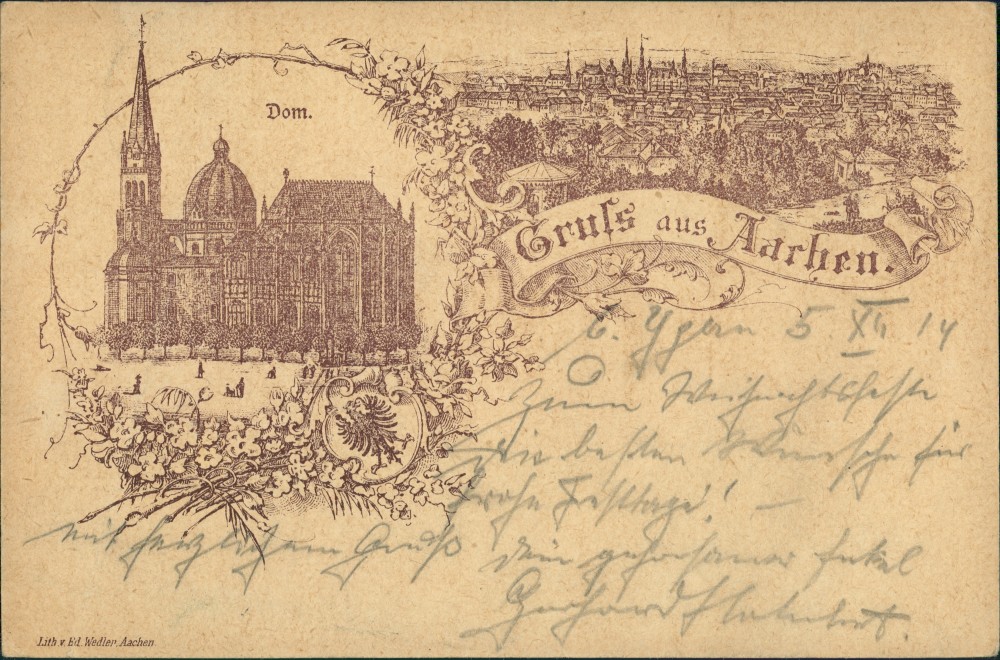 Dom.
Gruss aus Aachen.
5 XII 14
Zum Weihnachtsfeste
die besten Wünsche für
Frohe Festtage! –
Mit herzlichem Gruß
Dein gehorsamer Enkel
Gerhard
Lith. v. Ed. Wedler, Aachen